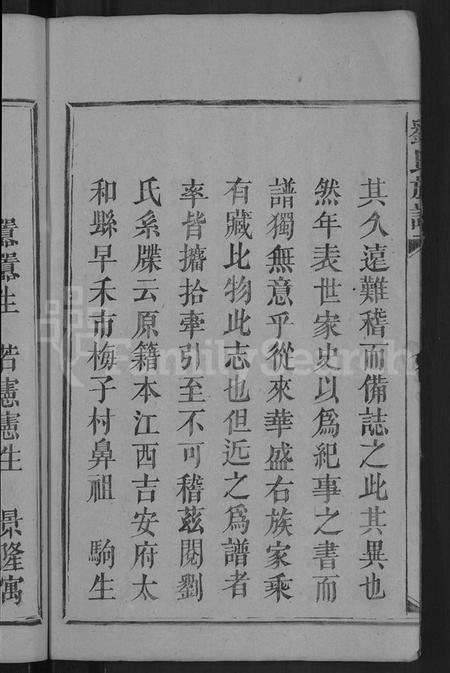 其久遠難稽而備誌之此其異也
然年表世家史以爲紀事之書而
譜獨無意乎從來華盛右族家乘
有藏比物此志也但近之爲譜者
率皆攟拾牽引至不可稽茲閱劉
氏系牒云原籍本江西吉安府太
和縣早禾市梅子村鼻祖 駒生
生 若憲憲生 景隆寓
FamilySearch